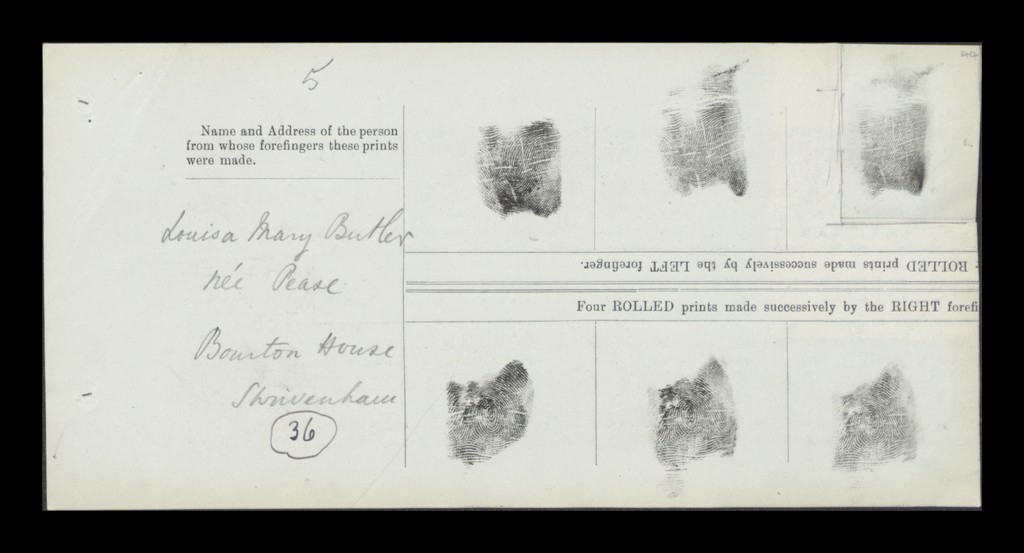 5
Name and Address of the person
from whose forefingers these prints
were made.
Louisa Mary Butler
née Pease
Bourton House
Shrivenham
36
ROLLED prints made successively by the LEFT forefinger.
Four ROLLED prints made successively by the RIGHT forefi